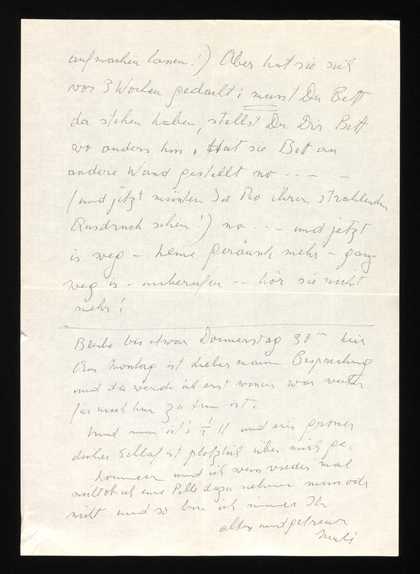 aufmachen lassen!) Aber hat sie sich
vor 3 Wochen gedacht: musst Du Bett
da stehen haben, stellst Du Dir's Bett
wo anders hin, Hat sie Bett an
andere Wand gestellt no - - - -
(und jetzt müssten Sie ihren strahlenden
Ausdruck sehen!) no - - - und jetzt
is weg - keine geräusch mehr - ganz
weg is - unberufen - hör sie nicht
mehr!
Bleibe bis etwa Donnerstag 30ten hier
Am Montag ist hier meine Besprechung
und da werde ich erst wissen was weiter
für mich hier zu tun ist.
Und nun ist's ½ 11 und ein grosser
dicker Schlaf ist plötzlich über mich ge-
kommen und ich weiss wieder mal
nicht ob ich eine Pille dazu nehmen muss oder
nicht und so bin ich immer Ihr
alter und getreuer